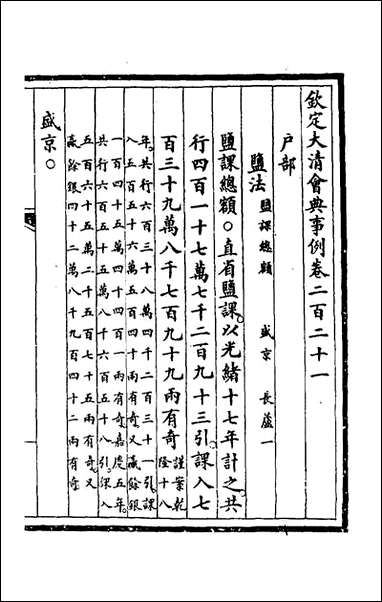 欽定大清會典事例卷二百二十一
戶部
鹽法 鹽課總額 盛京 長蘆一
鹽課總額○直省鹽課以光緒十七年計之共
行四百一十七萬七千二百九十三引課入七
百三十九萬八千七百九十九兩有奇 謹案乾
隆十八
年共行六百三十八萬四千二百三十一引課
入五百五十六萬五百四十兩有奇又贏餘銀
一百四十五萬四千四百一兩有奇嘉慶五年
共行六百五十五萬八千六百五十八引課入
五百六十五萬二千五百七十五兩有奇又
贏餘銀四十二萬八千九百四十二兩有奇
盛京○